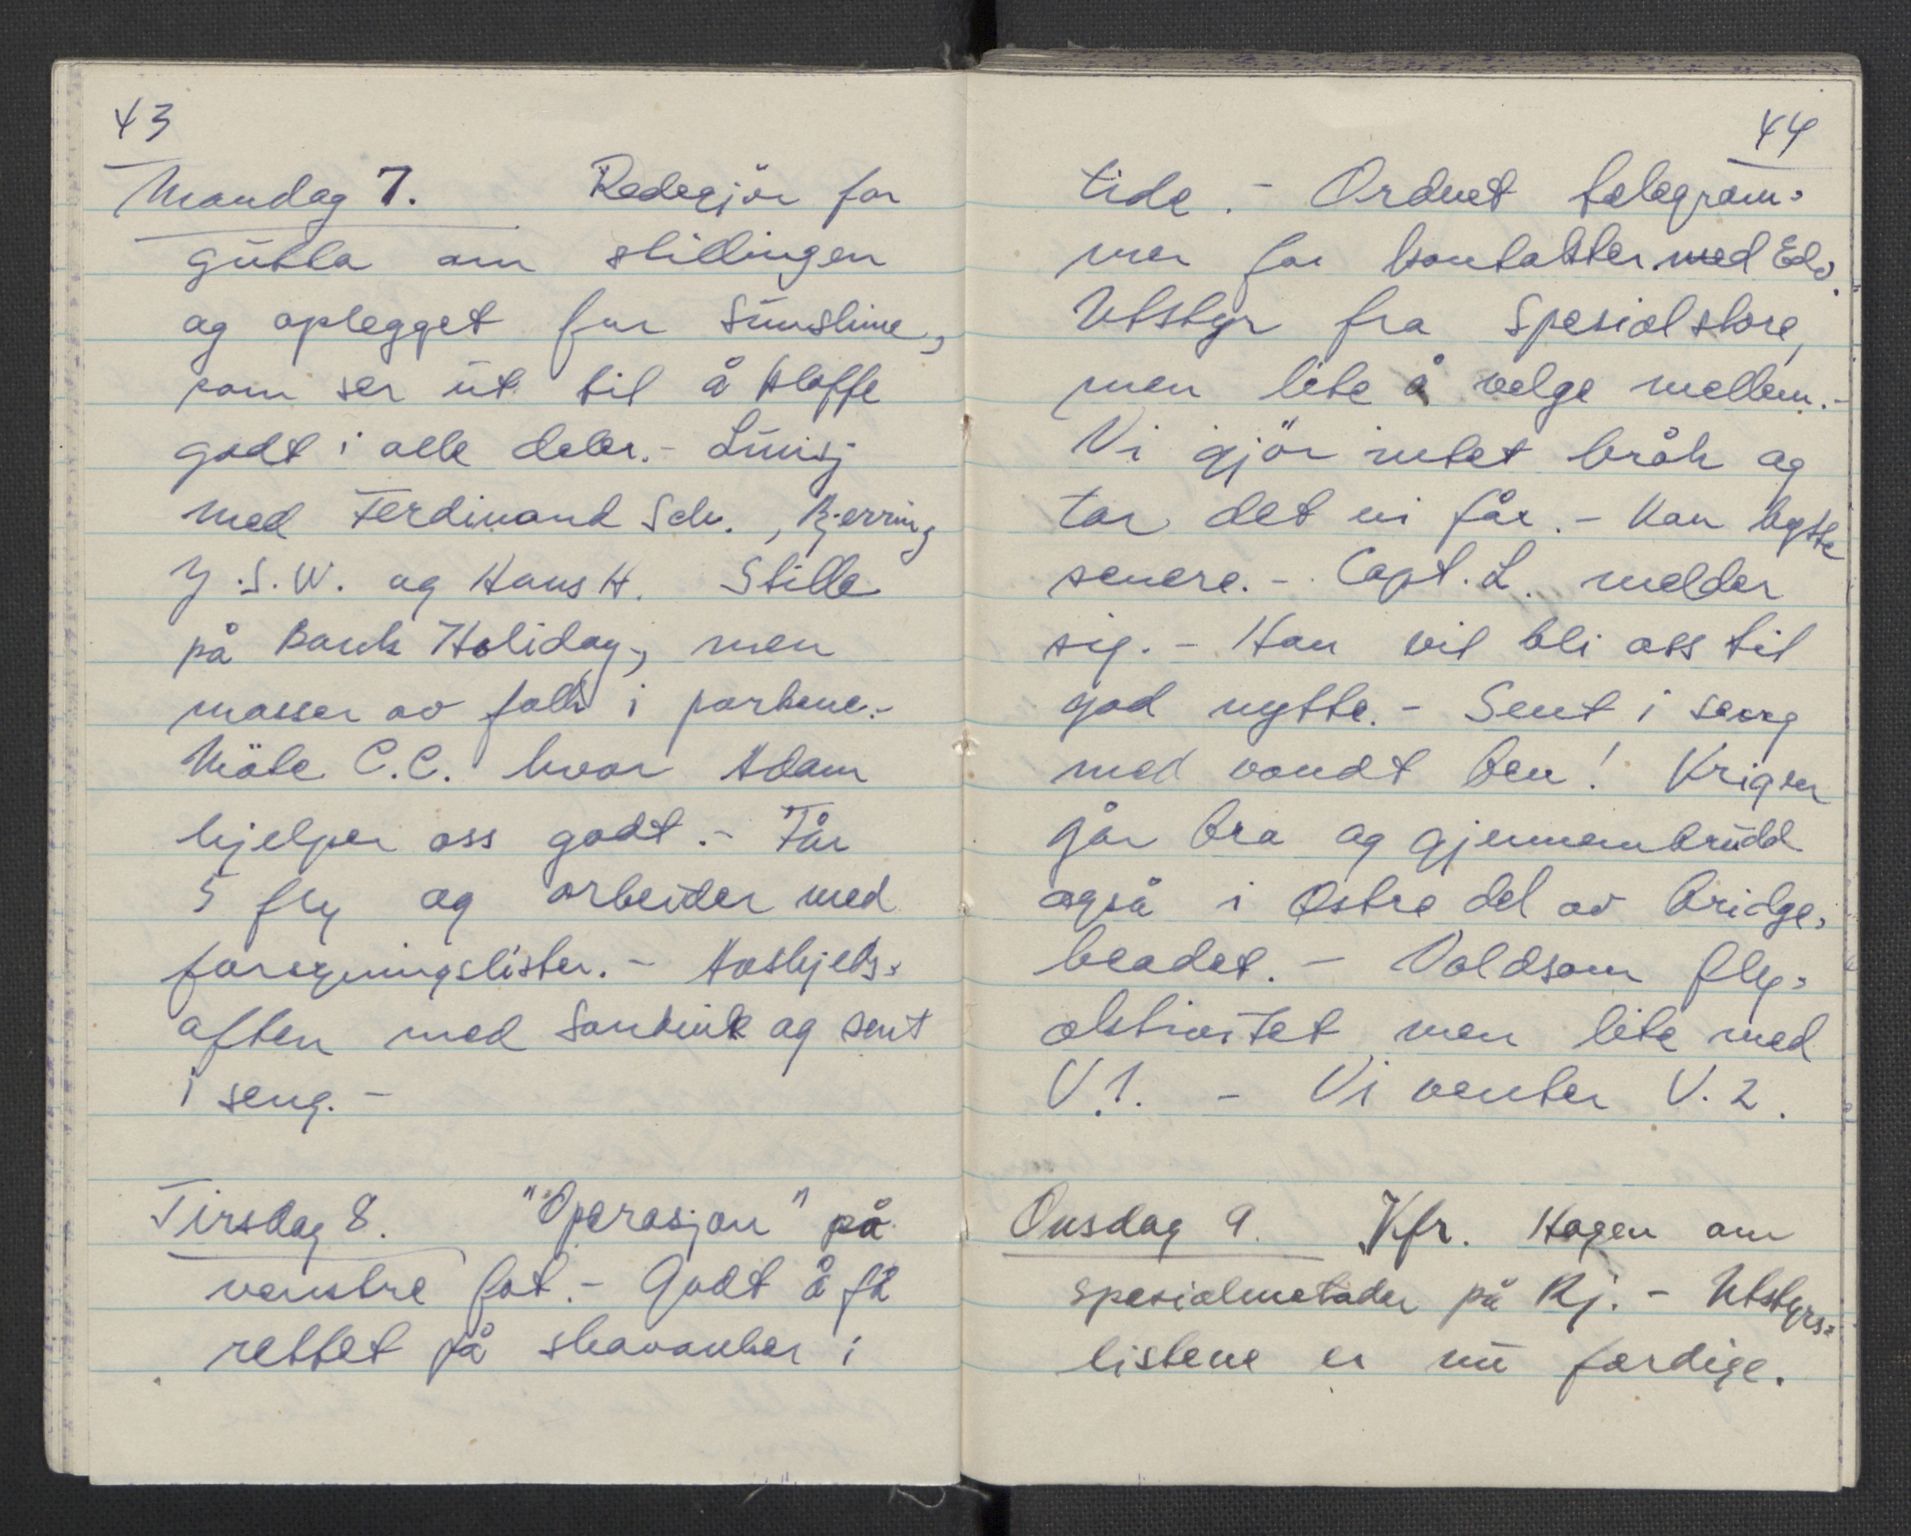 43
Mandag 7. Redegjör for
gutta om stillingen
og oplegget for Sunshine,
som ser ut til å klaffe
godt i alle deler. - Lunsj
med Ferdinand Sch., Bjerring
J.S.W. og Hans H. Stille
på Bank Holiday, men
masser av folk i parkene. -
Möte C.C. hvor Adam
hjelper oss godt. - Får
5 fly og arbeider med
forsyningslister. - Avskjeds=
aften med Sanvik og sent
i seng. -
Tirsdag 8. "Operasjon" på
venstre fot. - Godt å få
rettet på skavanker i
44
tide. - Ordnet telegram=
mer for kontakter med Edv.
Utstyr fra Spesialstore,
men lite å velge mellem. -
Vi gjör intet bråk og
tar det vi får. - Kan bytte
senere. - Capt. L. melder
sig. - Han vil bli oss til
god nytte. - Sent i seng
med vondt ben! Krigen
går bra og gjennembrudd
også i Østre del av bridge=
headet. - Voldsom fly=
aktivitet men lite med
V.1. - Vi venter V.2.
Onsdag 9. Kfr. Hagen om
spesialmetoder på Rj. - Utstyrs=
listene er nu færdige.